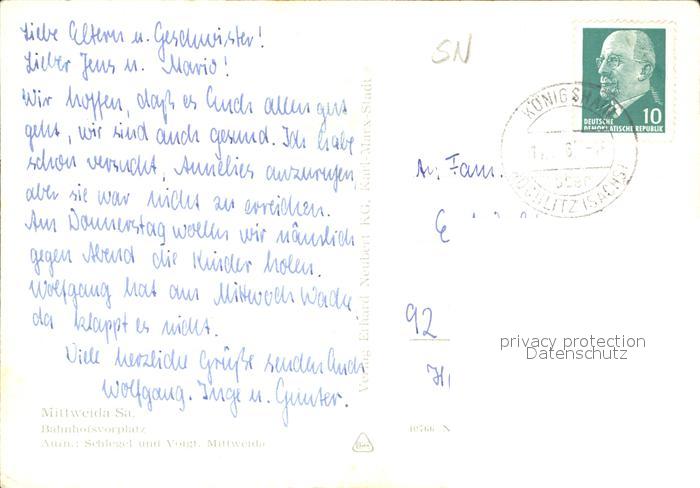 Liebe Eltern u. Geschwister!
Lieber Jens u. Mario!
Wir hoffen, daß es Euch allen gut
geht, wir sind auch gesund. Ich habe
schon versucht, Annelies anzurufen,
aber sie war nicht zu erreichen.
Am Donnerstag wollen wir nämlich
gegen Abend die Kinder holen.
Wolfgang hat am Mittwoch Wache,
da klappt es nicht.
Viele herzliche Grüße senden Euch
Wolfgang, Inge u. Günter.
Mittweida Sa.
Bahnhofsvorplatz
Aufn.: Schlegel und Voigt, Mittweida
Verlag Erhard Neubert KG, Karl-Marx-Stadt
SN
DEUTSCHE
DEMOKRATISCHE REPUBLIK
10
KÖNIGSHAIN
An Fam.
92
privacy protection
Datenschutz